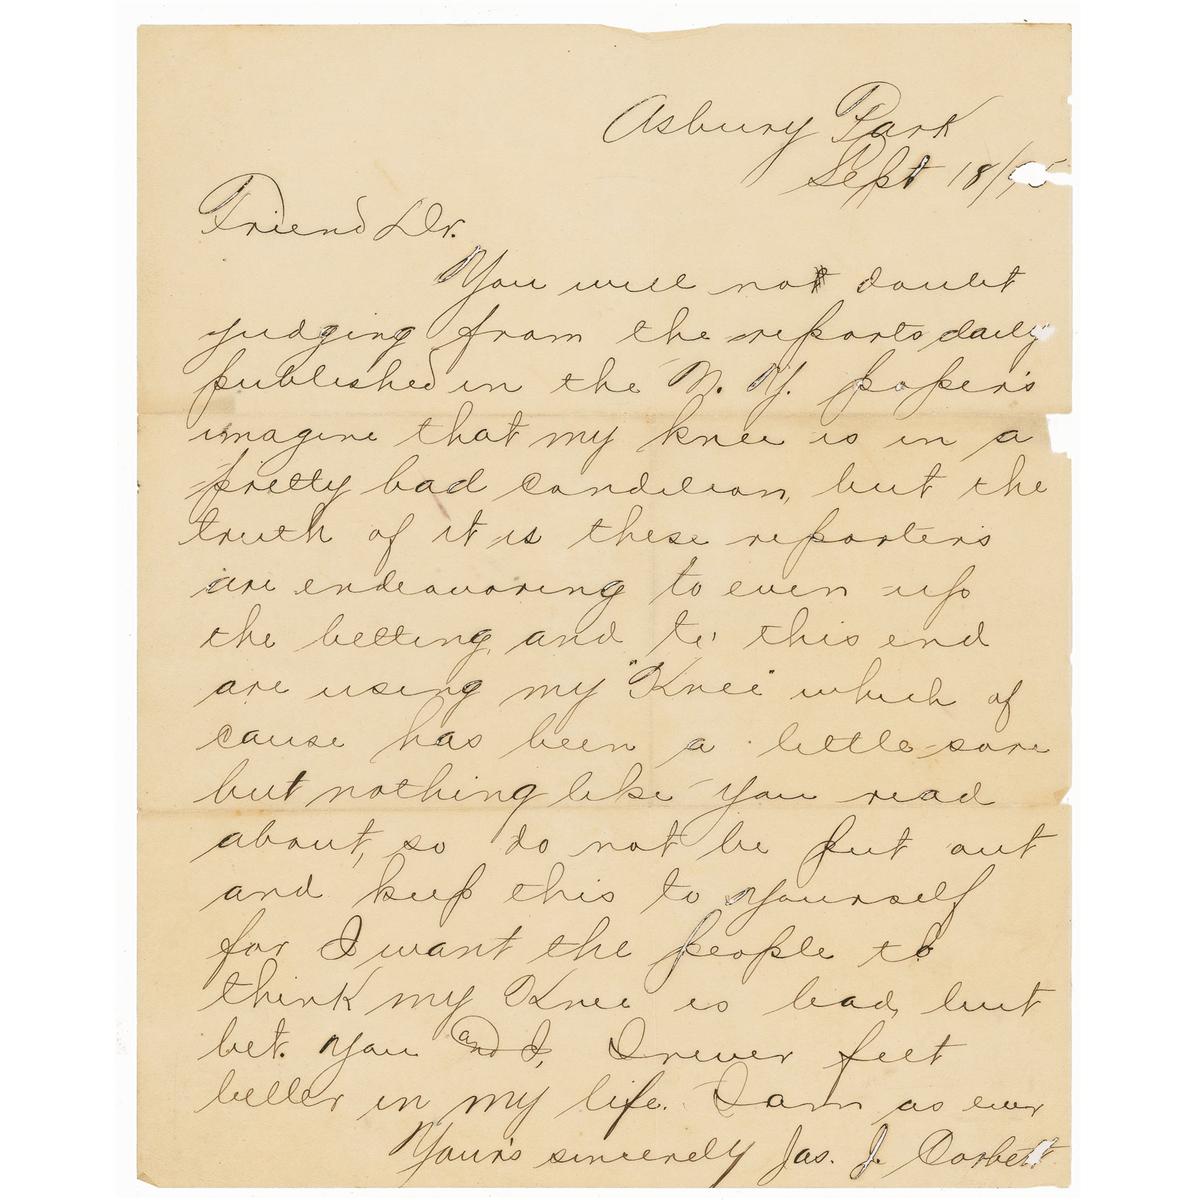 Asbury Park
Sept 18/95
Friend Dr.
You will not doubt
judging from the reports daily
published in the N. Y. paper's
imagine that my knee is in a
pretty bad condition, but the
truth of it is these reporter's
are endeavoring to even up
the betting, and to this end
are using my "Knee" which of
cause has been a little sore
but nothing like you read
about, so do not be put out
and keep this to yourself
for I want the people to
think my Knee is bad, but
bet. you and I, I never felt
better in my life. I am as ever
Your's sincerely Jas. J. Corbett